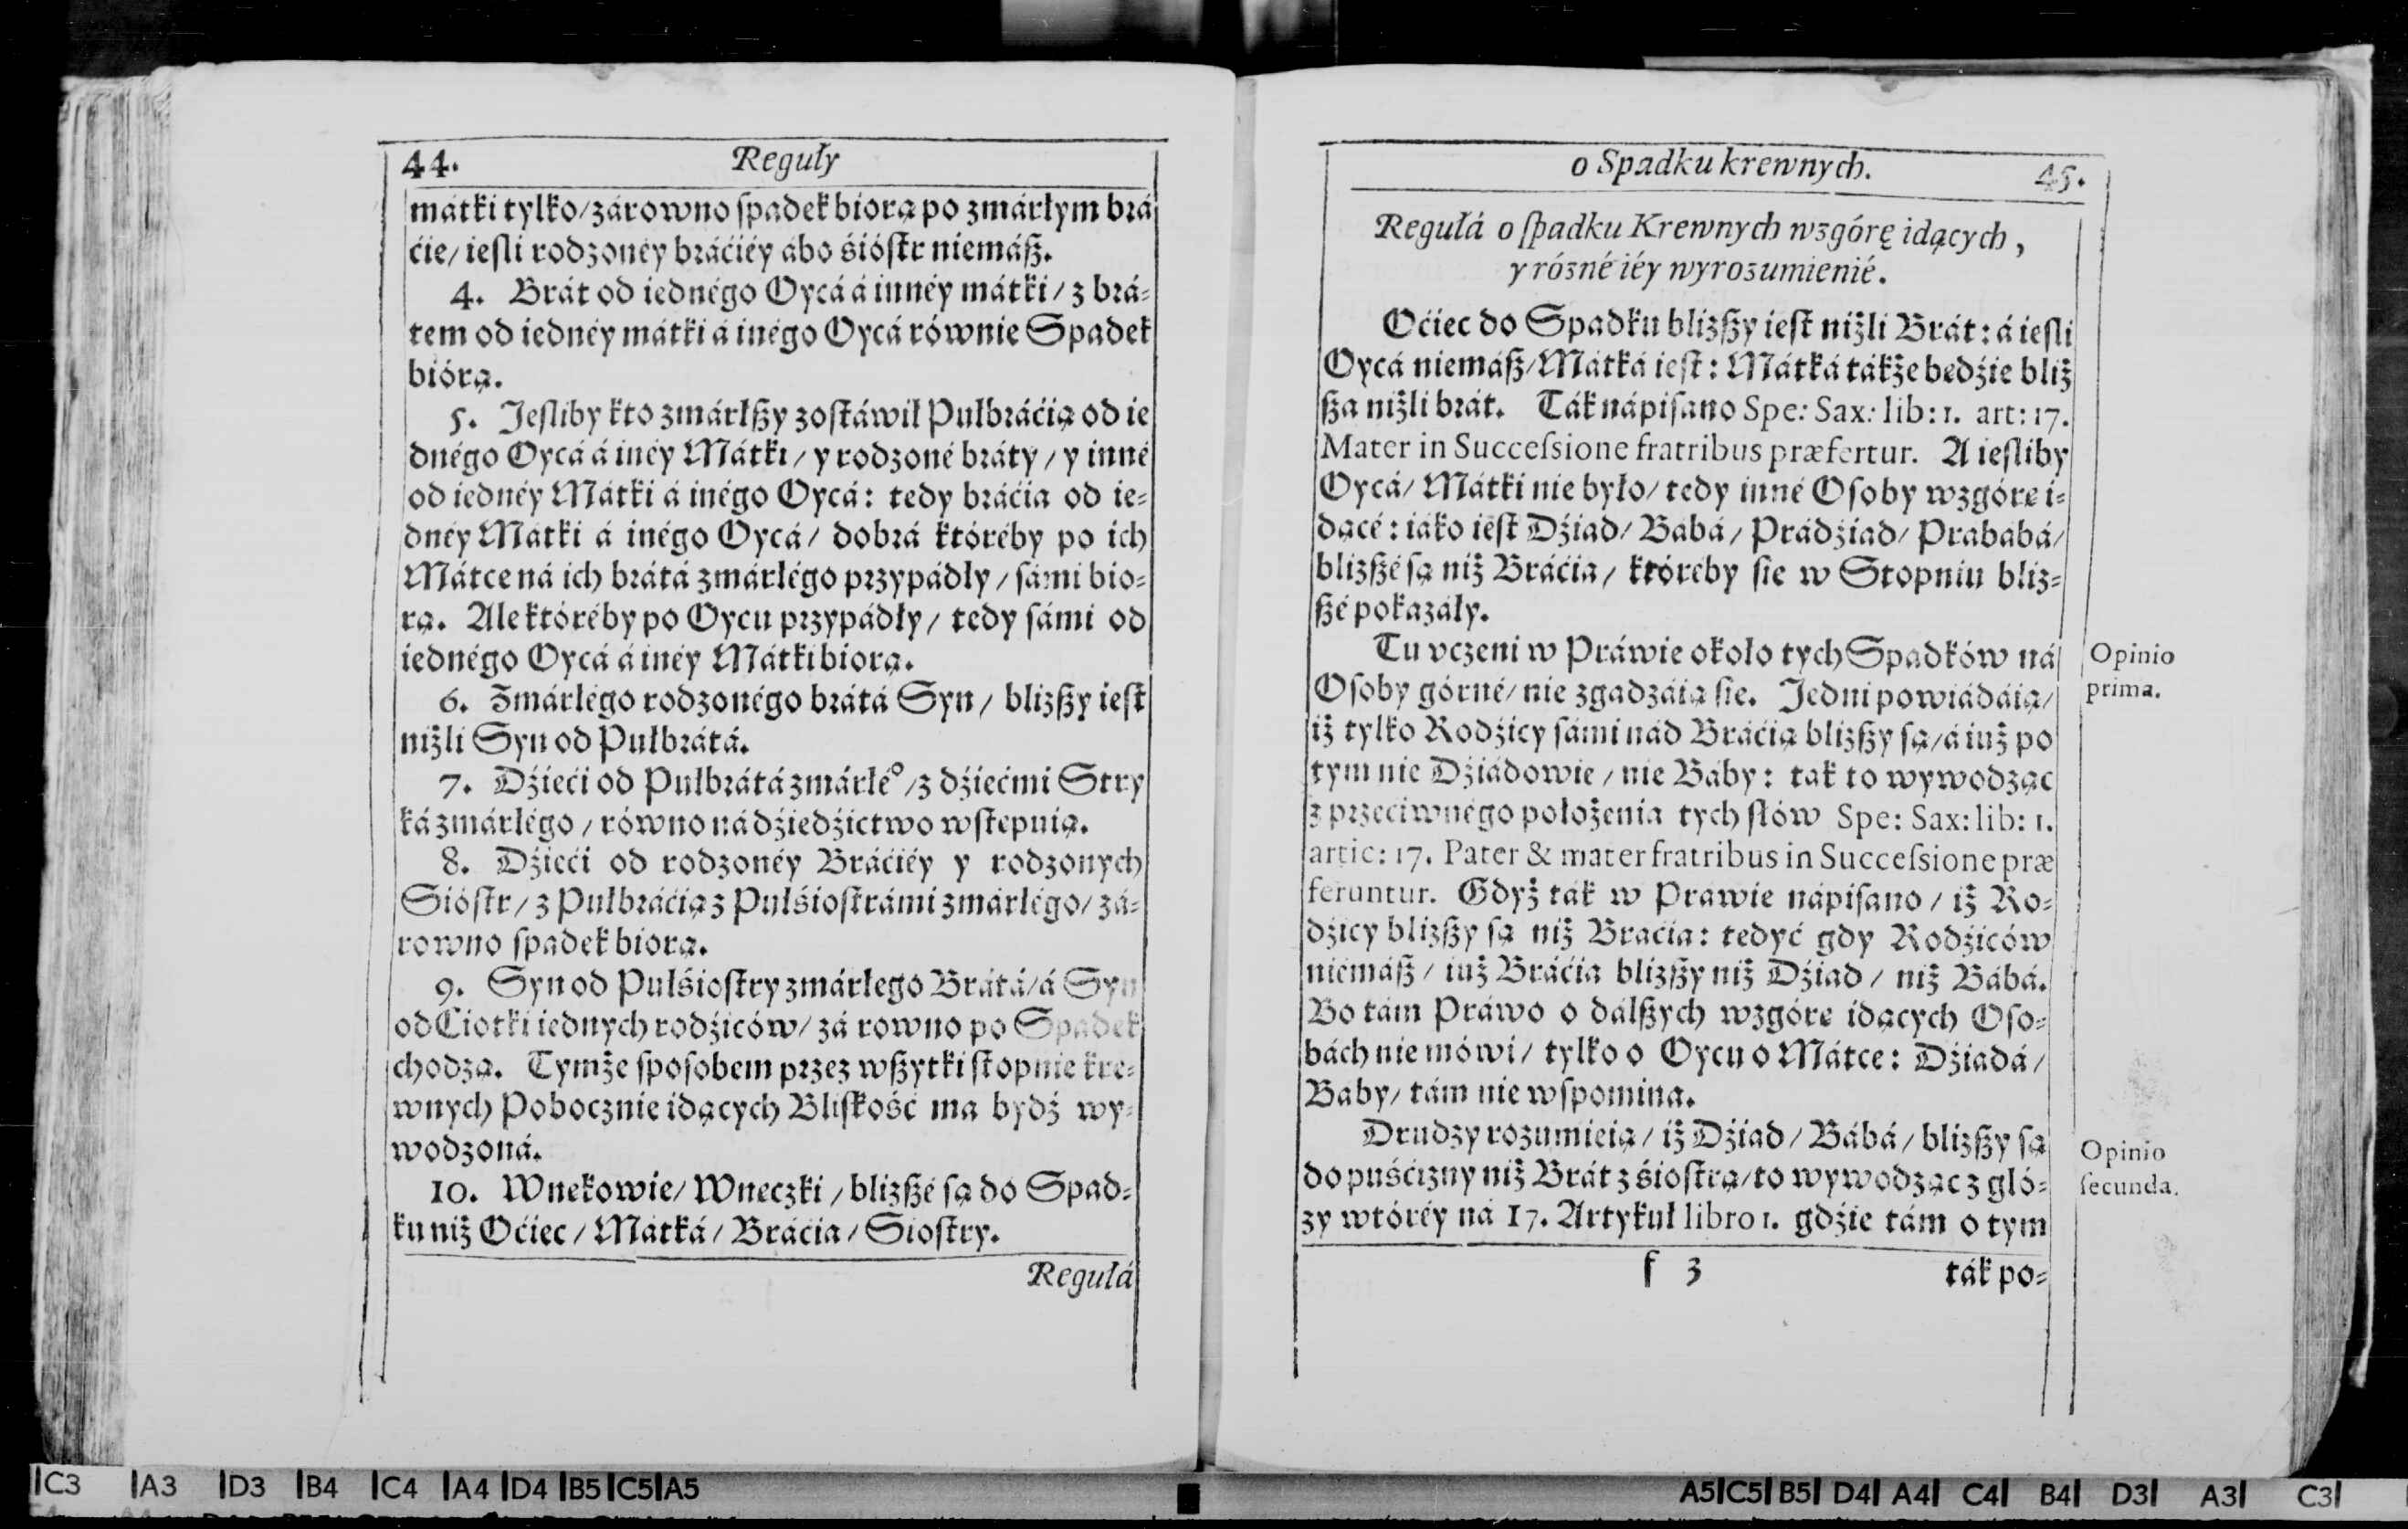 44.
Reguły
mátki tylko/zárowno ſpadek biorą po zmárłym brá
ćie/ ieſli rodzonéy bráćiéy ábo śióſtr niemáſz.
4. Brát od iednégo Oycá á innéy mátki/ z brá-
tem od iednéy mátki á inégo Oycá równie Spadek
biórą.
5. Jeſliby kto zmárłſzy zoſtáwił Pułbráćią od ie
dnégo Oycá á inéy Mátki/ y rodzoné bráty/ y inné
od iednéy Mátki á inégo Oycá: tedy bráćia od ie-
dnéy Mátki á inégo Oycá/ dobrá któréby po ich
Mátce ná ich brátá zmárłégo przypádły/ ſámi bio-
rą. Ale któréby po Oycu przypádły/ tedy ſámi od
iednégo Oycá á inéy Mátki biorą.
6. Zmárłégo rodzonégo brátá Syn/ blizſzy ieſt
niżli Syn od Pułbrátá.
7. Dźieći od Pułbrátá zmárłé°/z dźiećmi Stry
ká zmárłégo/ równo ná dźiedźictwo wſtepuią.
8. Dźieći od rodzonéy Bráćiéy y rodzonych
Sióſtr/ z Pułbráćią z Pułśioſtrámi zmárłégo/ zá-
rowno ſpadek biorą.
9. Syn od Pułśioſtry zmárłego Brátá/á Syn
od Ciotki iednych rodźiców/ zá rowno po Spadek
chodzą. Tymże ſpoſobem przez wſzytki ſtopnie kre-
wnych Pobocznie idących Bliſkość ma bydź wy-
wodzoná.
10. Wnekowie/ Wneczki/ blizſzé ſą do Spad-
ku niż Oćiec/ Mátká/ Bráćia/ Sioſtry.
Regułá
o Spadku krewnych.
45.
Regułá o ſpadku Krewnych wzgórę idących,
y rózné iéy wyrozumienié.
Oćiec do Spadku blizſzy ieſt niżli Brát: á ieſli
Oycá niemáſz/Mátká ieſt: Mátká tákże bedźie bliż
ſza niżli brát. Ták nápiſano Spe: Sax: lib: 1. art: 17.
Mater in Succeſsione fratribus præfertur. A ieſliby
Oycá/ Mátki nie było/ tedy inné Oſoby wzgóre i-
dącé: iáko ieſt Dźiad/ Babá/ Prádźiad/ Prababá/
blizſzé ſą niż Bráćia/ któréby ſie w Stopniu bliz-
ſzé pokazáły.
Tu vczeni w Práwie około tych Spadków ná
Oſoby górné/ nie zgadzáią ſie. Jedni powiádáią/
iż tylko Rodźicy ſámi nád Bráćią blizſzy ſą/á iuż po
tym nie Dźiádowie/ nie Báby: tak to wywodząc
z przeciwnégo położenia tych ſłów Spe: Sax: lib: 1.
artic: 17. Pater & mater fratribus in Succeſsione præ
feruntur. Gdyż ták w Práwie nápiſano/ iż Ro-
dźicy blizſzy ſą niż Bráćia: tedyć gdy Rodźiców
niémáſz/ iuż Bráćia blizſzy niż Dźiad/ niż Bábá.
Bo tám Práwo o dálſzych wzgóre idących Oſo-
bách nie mówi/ tylko o Oycu o Mátce: Dźiadá/
Baby/ tám nie wſpomina.
Drudzy rozumieią/ iż Dźiad/ Bábá/ blizſzy ſą
do puśćizny niż Brát z śioſtrą/to wywodząc z gló-
zy wtóréy ná 17. Artykuł libro 1. gdźie tám o tym
f 3
ták po-
Opinio
prima.
Opinio
ſecunda.
C3 A3 D3 B4 C4 A4 D4 B5 C5 A5
A5 C5 B5 D4 A4 C4 B4 D3 A3 C3